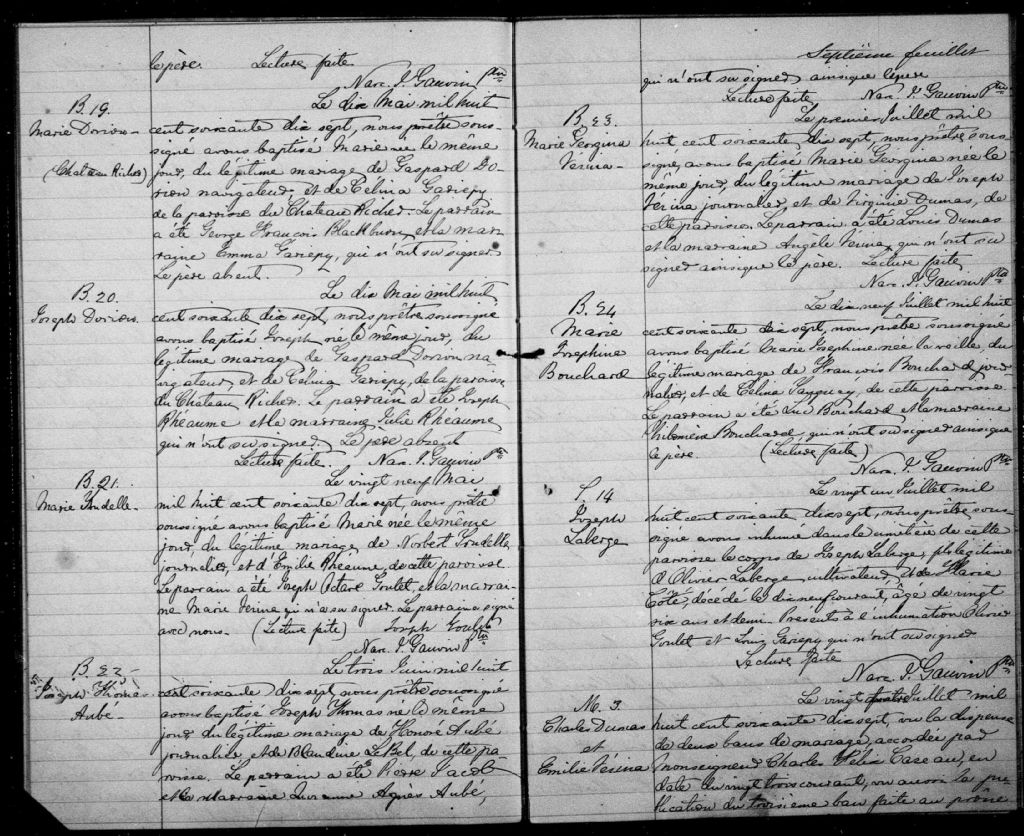 le père. Lecture faite
Narc. J. Gauvin Ptre
B. 19.
Marie Dorion
(Chateau Richer)
Le dix Mai mil huit
cent soixante dix sept, nous prêtre sous-
signé avons baptisé Marie née le même
jour, du légitime mariage de Gaspard Do-
rion navigateur et de Célina Gariepy
de la paroisse du Chateau Richer. Le parrain
a été George François Blackburn et la mar-
raine Emma Gariepy, qui n'ont su signer.
Le père absent.
B. 20.
Joseph Dorion.
Le dix Mai mil huit
cent soixante dix sept nous prêtre soussigné
avons baptisé Joseph né le même jour, du
légitime mariage de Gaspard Dorion na-
vigateur et de Célina Gariepy, de la paroisse
du Chateau Richer. Le parrain a été Joseph
Rhéaume et la marraine Julie Rhéaume,
qui n'ont su signer. Le père absent
Lecture faite. Narc. J. Gauvin Ptre
B. 21.
Marie Goudelle
Le vingt neuf Mai
mil huit cent soixante dix sept, nous prêtre
soussigné avons baptisé Marie née le même
jour, du légitime mariage de Norbert
journalier, et d'Emilie Rhéaume, de cette paroisse.
Le parrain a été Joseph Octave Goulet, et la marrai-
ne Marie Verina qui n'a su signer. Le parrain a signé
avec nous. (Lecture faite) Joseph Goulet
Narc. J. Gauvin Ptre
B. 22
Joseph Thomas
Aubé
Le trois Juin mil huit
cent soixante dix sept nous prêtre soussigné
avons baptisé Joseph Thomas né le même
jour du légitime mariage de Honoré Aubé
journalier, et de Blandine LeBel, de cette pa-
roisse. Le parrain a été Pierre Jacob
et la Marraine Agnès Aubé,
Septième feuillet
qui n'ont su signer ainsi que le père
Lecture faite Narc. J. Gauvin Ptre
B. 23.
Marie Georgina
Verina
Le premier Juillet mil
huit cent soixante dix sept, nous prêtre sous-
signé, avons baptisé Marie Georgina née le
même jour, du légitime mariage de Joseph
Verina journalier, et de Virginie Dumas, de
cette paroisse. Le parrain a été Louis Dumas
et la marraine Angèle Verina qui n'ont su
signer ainsi que le père. Lecture faite
Narc. J. Gauvin Ptre
B. 24
Marie
Josephine
Bouchard
Le dix neuf Juillet mil huit
cent soixante dix sept, nous prêtre soussigné
avons baptisé Marie Josephine née la veille, du
légitime mariage de François Bouchard jour-
nalier, et de Célina de cette paroisse.
Le parrain a été Luc Bouchard et la marraine
Philomène Bouchard, qui n'ont su signer ainsi que
le père. (Lecture faite)
Narc. J. Gauvin Ptre
S. 14
Joseph
Laberge
Le vingt un Juillet mil
huit cent soixante dix sept, nous prêtre sous-
signé avons inhumé dans le cimetière de cette
paroisse le corps de Joseph Laberge, fils légitime
d'Olivier Laberge, cultivateur, et de Marie
Côté, décédé le dix neuf courant, âgé de vingt
six ans et demi. Présents à l'inhumation Olivier
Goulet et Louis Gariepy qui n'ont su signer
Lecture faite
Narc. J. Gauvin Ptre
M. 3.
Charles Dumas
et
Emilie Verina
Le vingt quatre Juillet mil
huit cent soixante dix sept, vu la dispense
de deux bans de mariage, accordée par
Monseigneur Charles Félix Cazeau, en
date du vingt trois courant, vu aussi la pu-
blication du troisième ban faite au prône